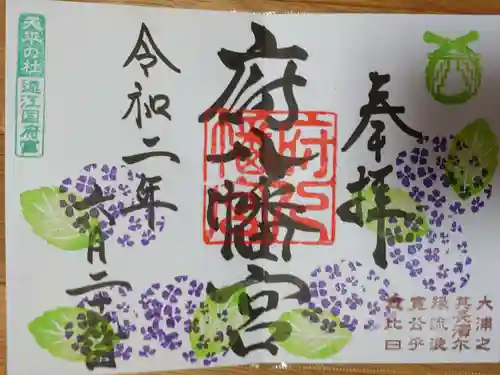 奉拝
府八幡宮
府八
幡宮
令和二年
六月二十
天平の杜
遠江国府宮
大浦之
其長濱尓
縁流浪
寛公乎
念比日